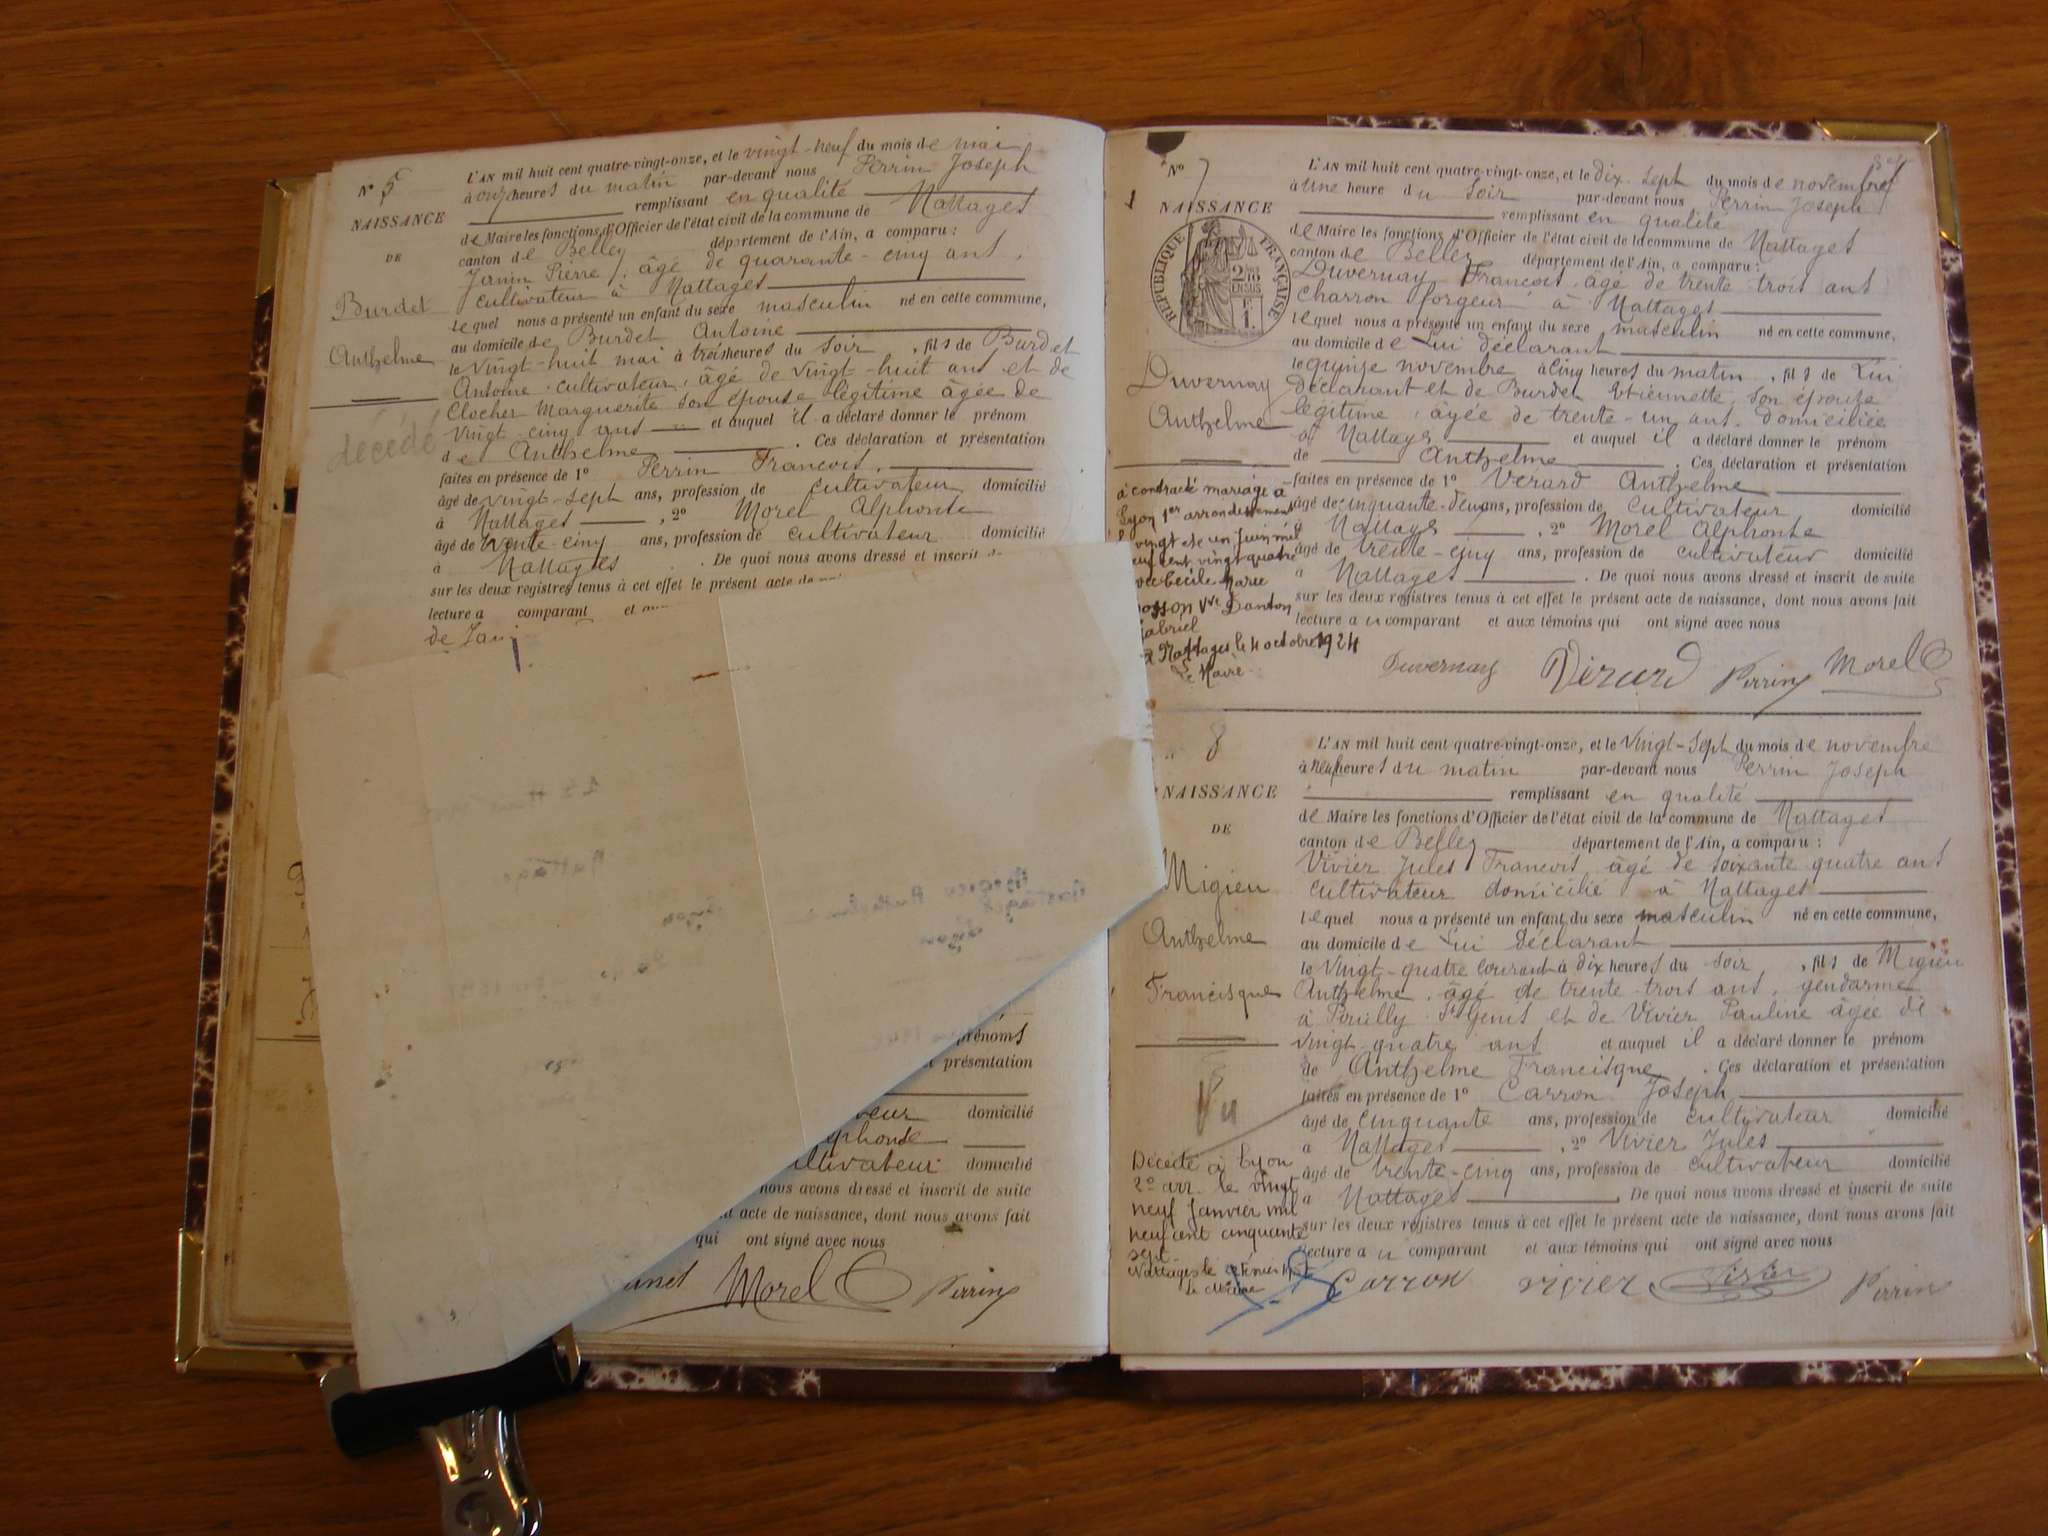 N° 5
NAISSANCE
DE
Burdet
Anthelme
décédé
L'AN mil huit cent quatre-vingt-onze, et le vingt-neuf du mois de mai
à onze heures du matin par-devant nous Perrin Joseph
remplissant en qualité
de Maire les fonctions d'Officier de l'état civil de la commune de Nattages
canton de Belley département de l'Ain, a comparu :
Janin Pierre, âgé de quarante-cinq ans,
cultivateur à Nattages
lequel nous a présenté un enfant du sexe masculin né en cette commune,
au domicile de Burdet Antoine
le vingt-huit mai à trois heures du soir, fils de Burdet
Antoine cultivateur, âgé de vingt-huit ans et de
Clocher Marguerite son épouse légitime âgée de
vingt-cinq ans et auquel il a déclaré donner le prénom
de Anthelme. Ces déclaration et présentation
faites en présence de 1° Perrin François,
âgé de vingt-sept ans, profession de cultivateur domicilié
à Nattages, 2° Morel Alphonse
âgé de trente-cinq ans, profession de cultivateur domicilié
à Nattages. De quoi nous avons dressé et inscrit
sur les deux registres tenus à cet effet le présent acte de
lecture a comparant et
de Jani
prénoms
présentation
domicilié
domicilié
nous avons dressé et inscrit de suite
acte de naissance, dont nous avons fait
qui ont signé avec nous
Morel Perrin
N° 7
NAISSANCE
RÉPUBLIQUE FRANÇAISE
Duvernay
Anthelme
L'AN mil huit cent quatre-vingt-onze, et le dix-sept du mois de novembre
à une heure du soir par-devant nous Perrin Joseph
remplissant en qualité
de Maire les fonctions d'Officier de l'état civil de la commune de Nattages
canton de Belley département de l'Ain, a comparu :
Duvernay François, âgé de trente-trois ans
charron forgeur à Nattages
lequel nous a présenté un enfant du sexe masculin né en cette commune,
au domicile de Lui déclarant
le quinze novembre à cinq heures du matin, fils de Lui
déclarant et de Burdet Etiennette, son épouse
légitime, âgée de trente-un ans, domiciliée
à Nattages et auquel il a déclaré donner le prénom
de Anthelme. Ces déclaration et présentation
faites en présence de 1° Verard Anthelme
âgé de cinquante-deux ans, profession de cultivateur domicilié
à Nattages, 2° Morel Alphonse
âgé de trente-cinq ans, profession de cultivateur domicilié
à Nattages. De quoi nous avons dressé et inscrit de suite
sur les deux registres tenus à cet effet le présent acte de naissance, dont nous avons fait
lecture au comparant et aux témoins qui ont signé avec nous
Duvernay Verard Perrin Morel
a contracté mariage à
Lyon 1er arrondissement
vingt et un juin mil
cent vingt quatre
Cécile Marie
Vve Danton
Gabriel
Nattages le 4 octobre 1924
Le Maire
8
NAISSANCE
DE
Migieu
Anthelme
Francisque
L'AN mil huit cent quatre-vingt-onze, et le vingt-sept du mois de novembre
à neuf heures du matin par-devant nous Perrin Joseph
remplissant en qualité
de Maire les fonctions d'Officier de l'état civil de la commune de Nattages
canton de Belley département de l'Ain, a comparu :
Vivier Jules François âgé de soixante quatre ans
cultivateur domicilié à Nattages
lequel nous a présenté un enfant du sexe masculin né en cette commune,
au domicile de Lui déclarant
le vingt-quatre courant à dix heures du soir, fils de Migieu
Anthelme, âgé de trente-trois ans, gendarme
à Pouilly St Genis et de Vivier Pauline âgée de
vingt-quatre ans et auquel il a déclaré donner le prénom
de Anthelme Francisque. Ces déclaration et présentation
faites en présence de 1° Carron Joseph
âgé de cinquante ans, profession de cultivateur domicilié
à Nattages, 2° Vivier Jules
âgé de trente-cinq ans, profession de cultivateur domicilié
à Nattages. De quoi nous avons dressé et inscrit de suite
sur les deux registres tenus à cet effet le présent acte de naissance, dont nous avons fait
lecture au comparant et aux témoins qui ont signé avec nous
Carron Vivier Vivier Perrin
Décédé à Lyon
2e arr. le vingt
neuf Janvier mil
neuf cent cinquante
sept
Nattages le